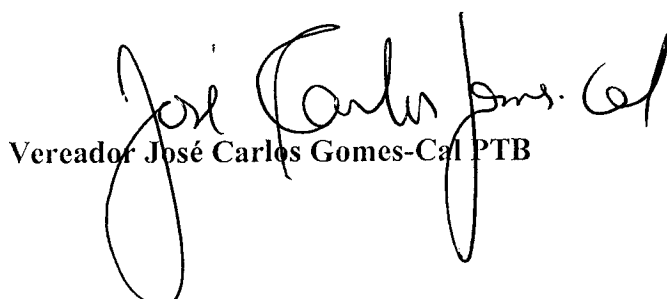 José Carlos Gomes-Cal
Vereador José Carlos Gomes-Cal PTB